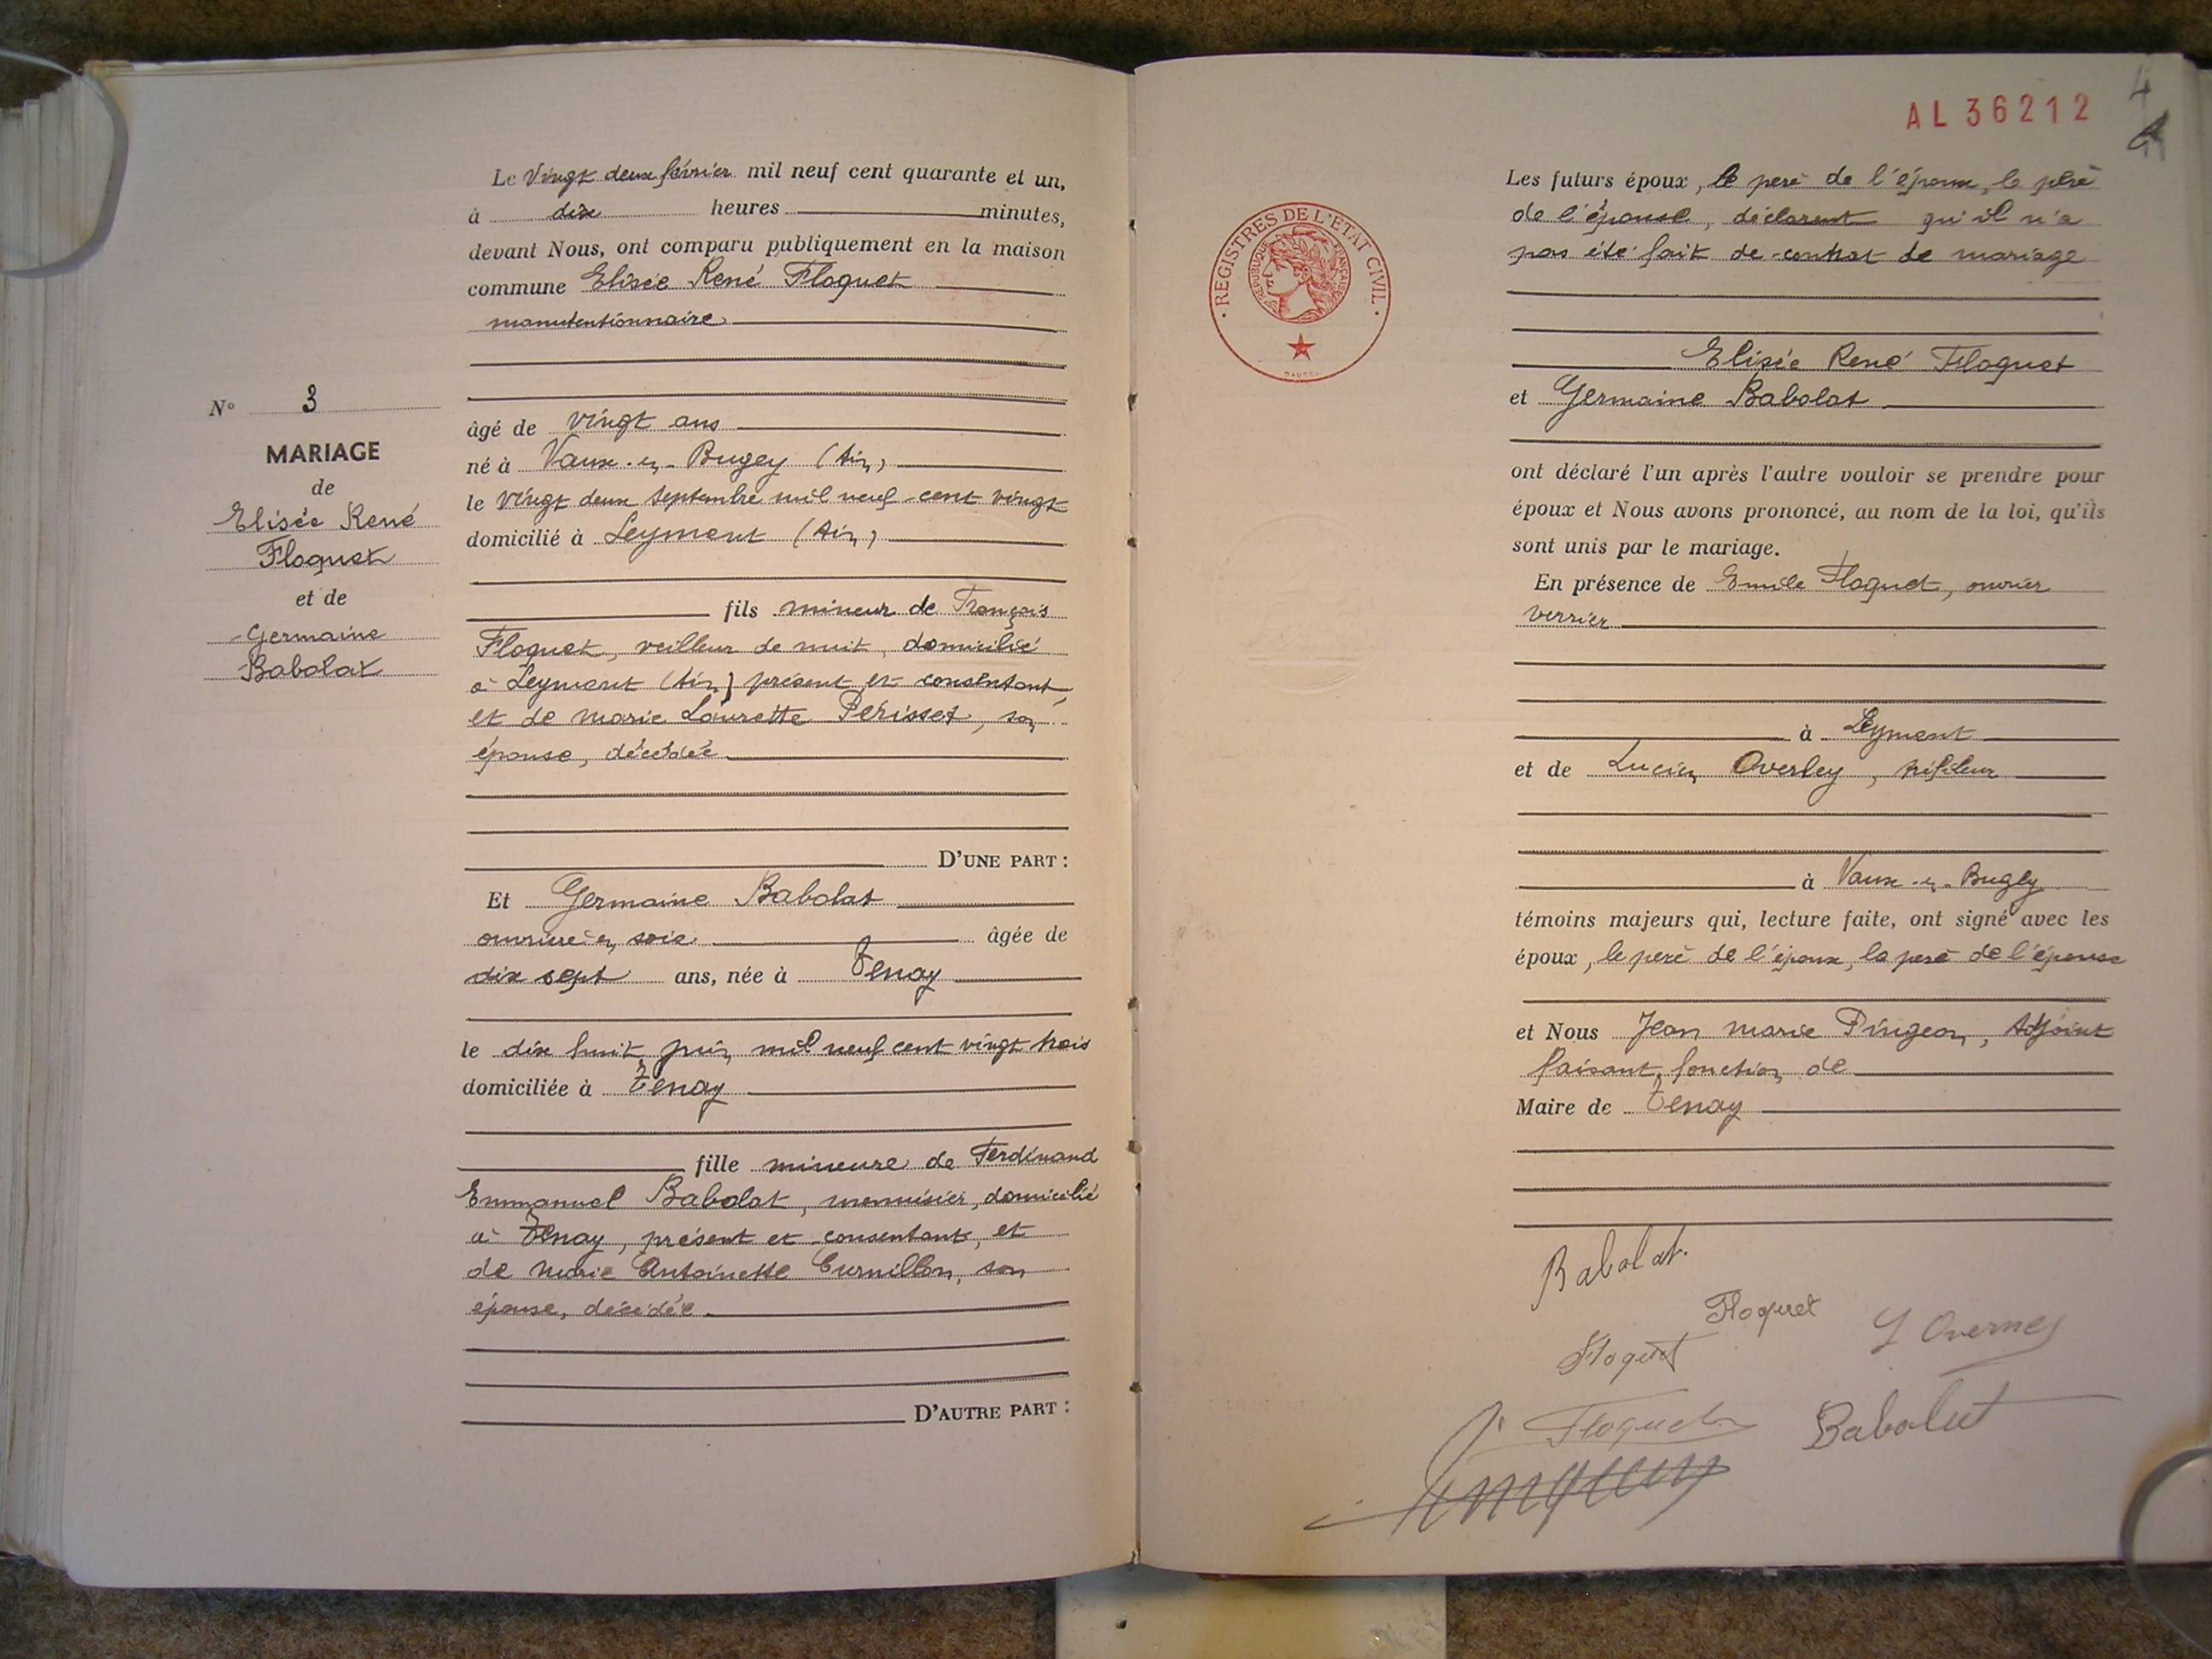 Le Vingt deux février mil neuf cent quarante et un,
à dix heures minutes,
devant Nous, ont comparu publiquement en la maison
commune Elisée René Floquet
manutentionnaire
âgé de vingt ans
né à Vaux-en-Bugey (Ain)
le vingt deux septembre mil neuf cent vingt
domicilié à Leyment (Ain)
fils mineur de François
Floquet, veilleur de nuit, domicilié
à Leyment (Ain) présent et consentant,
et de Marie Laurette Périsset, son
épouse, décédée
D'UNE PART :
N° 3
MARIAGE
de
Elisée René
Floquet
et de
Germaine
Babolat
Et Germaine Babolat
ouvrière en soie âgée de
dix sept ans, née à Tenay
le dix huit juin mil neuf cent vingt trois
domiciliée à Tenay
fille mineure de Ferdinand
Emmanuel Babolat, menuisier, domicilié
à Tenay, présent et consentant, et
de Marie Antoinette Curnillon, son
épouse, décédée.
D'AUTRE PART :
AL 36212
4
REGISTRES DE L'ETAT CIVIL
REPUBLIQUE FRANÇAISE
Les futurs époux, le père de l'époux, le père
de l'épouse, déclarent qu'il n'a
pas été fait de contrat de mariage
Elisée René Floquet
et Germaine Babolat
ont déclaré l'un après l'autre vouloir se prendre pour
époux et Nous avons prononcé, au nom de la loi, qu'ils
sont unis par le mariage.
En présence de Emile Floquet, ouvrier
verrier
à Leyment
et de Lucien Overley, tréfileur
à Vaux-en-Bugey
témoins majeurs qui, lecture faite, ont signé avec les
époux, le père de l'époux, le père de l'épouse
et Nous Jean Marie Pingeon, Adjoint
faisant fonction de
Maire de Tenay
Babolat.
Floquet
Floquet
Floquet
Babolat